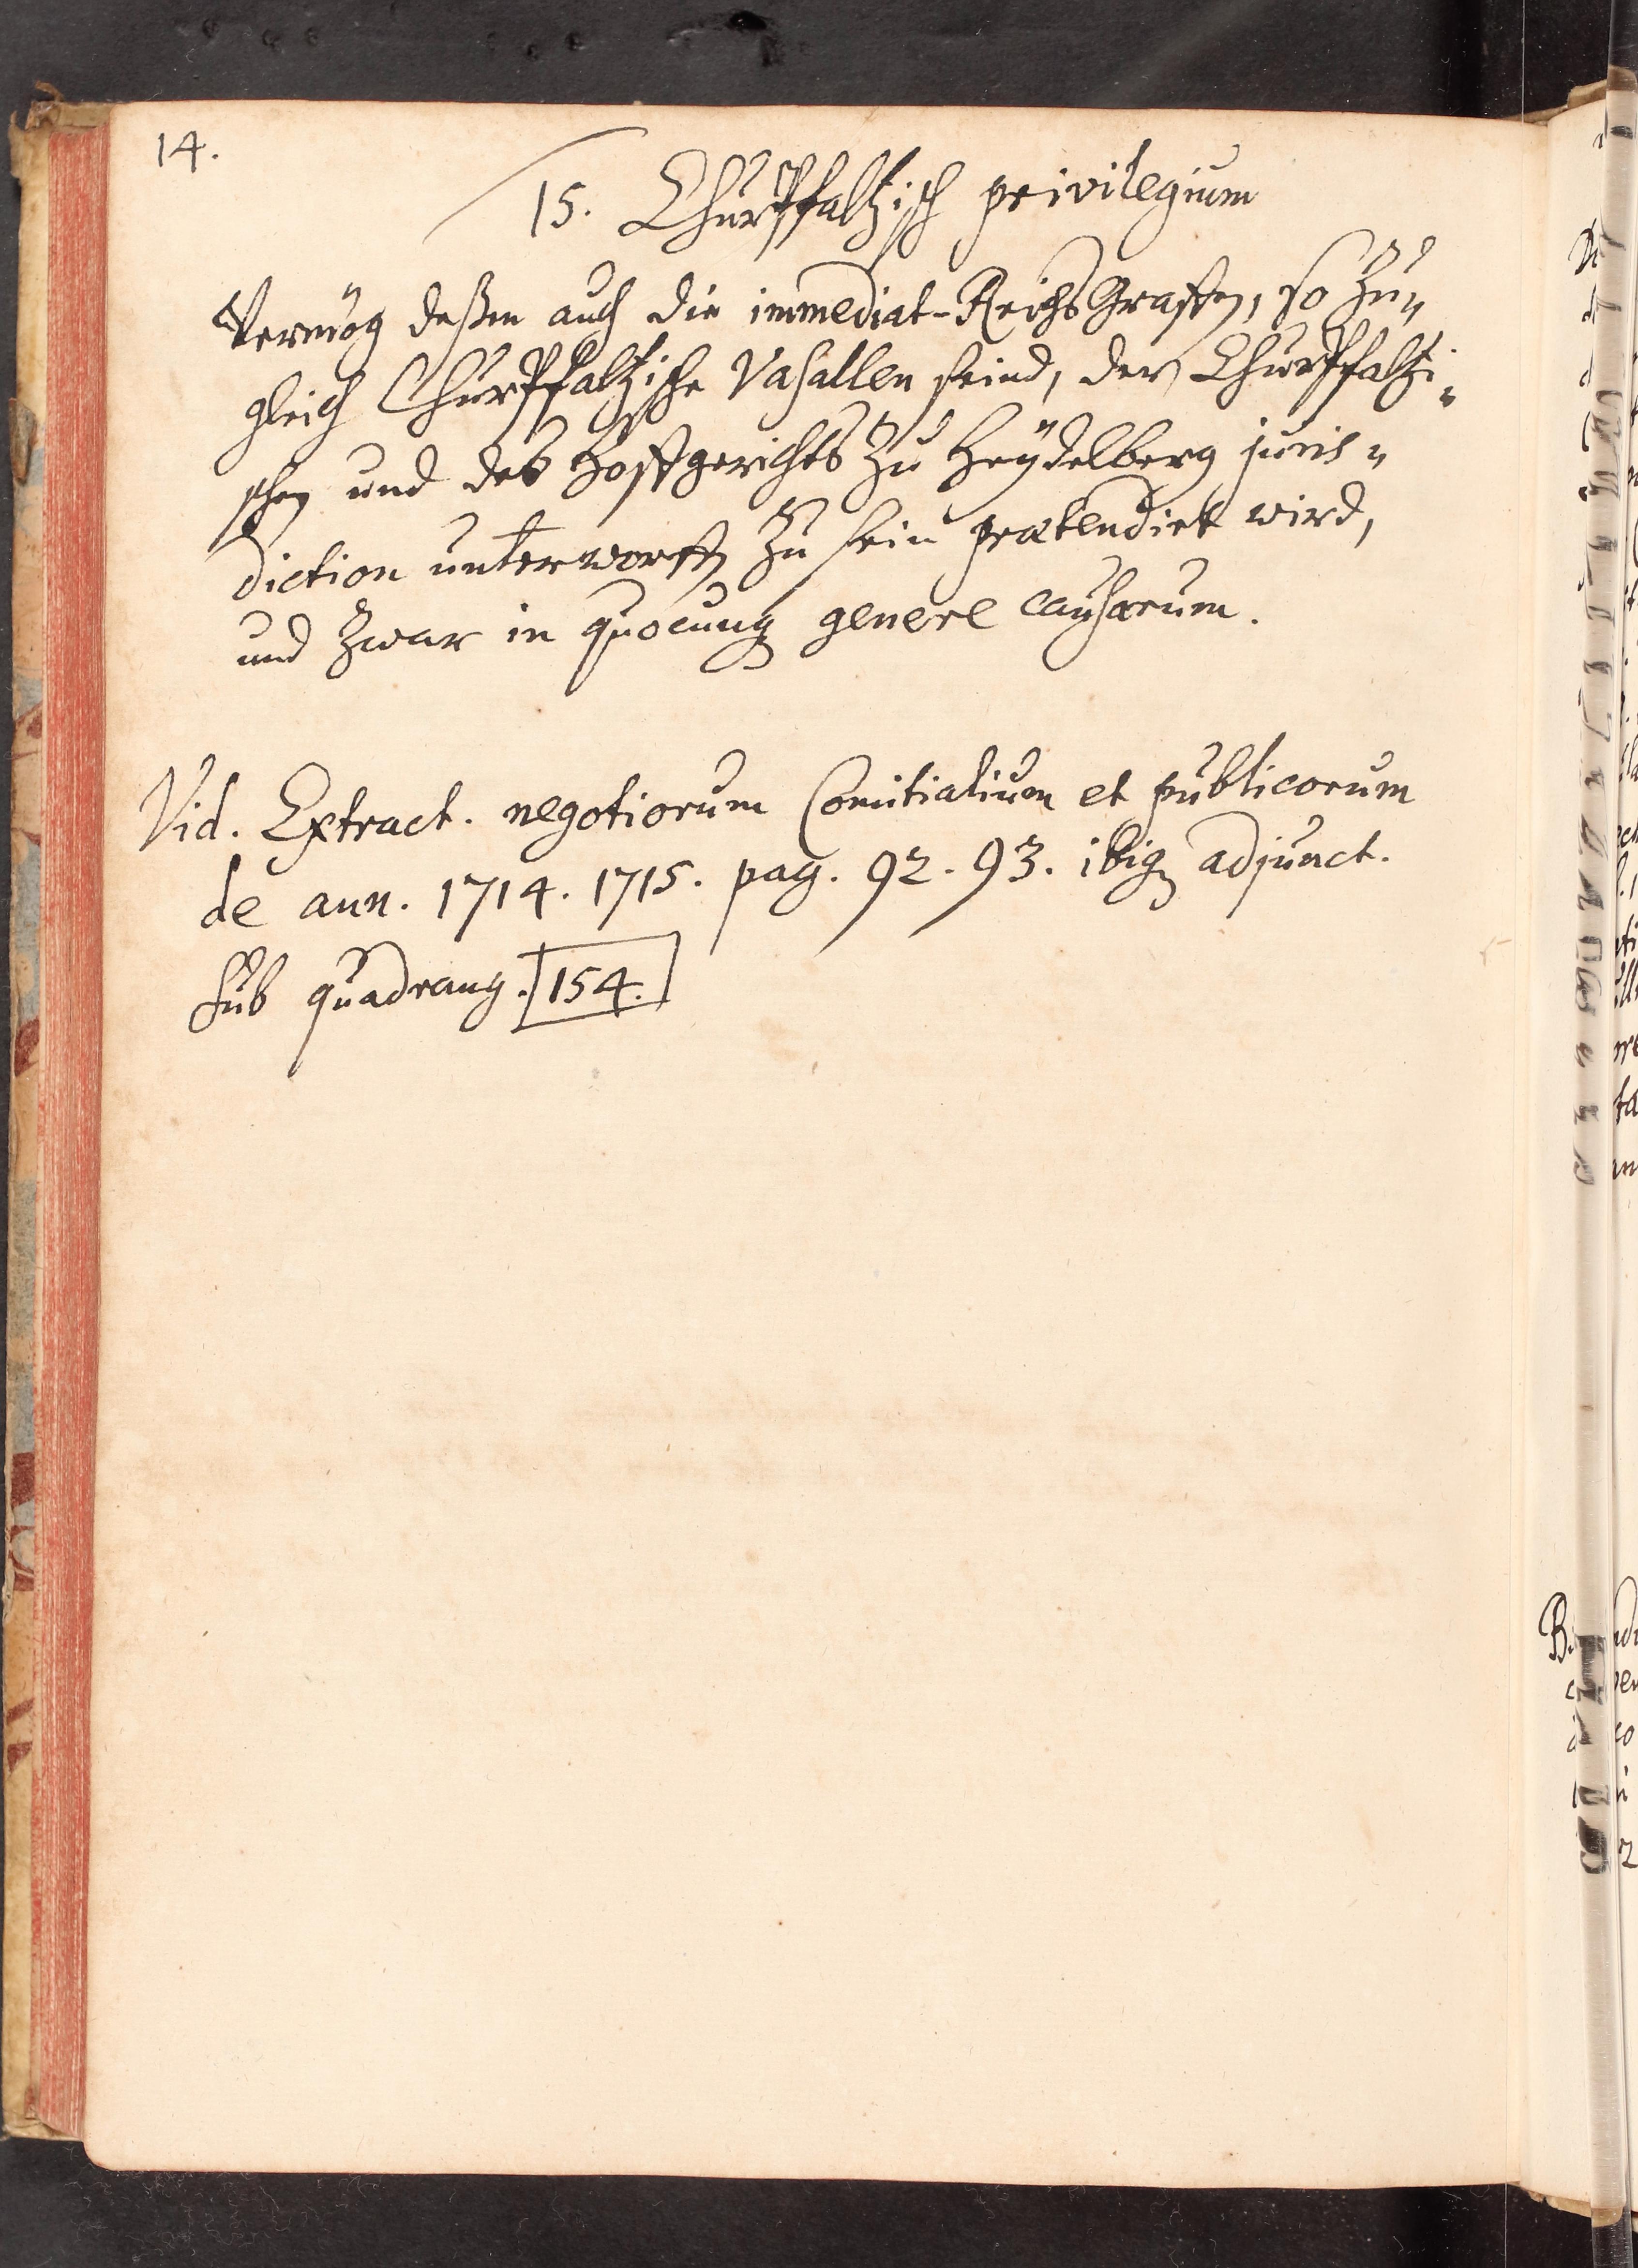 14.
15. Churpfaltzisch privilegium
Vermög deßen auch die immediat-ReichsGraffen, so Zu„
gleich Churpfaltzische Vasallen seind, der Churpfaltzi„
schen und des Hoffgerichts Zu Heÿdelberg juris„
diction unterworffen Zu sein prætendirt wird,
und Zwar in quocunq genere causarum.
Vid. Extract. negotiorum Comitialium et publicorum
de ann. 1714. 1715. pag. 92. 93. ibiq adjunct.
sub quadrang. 154.